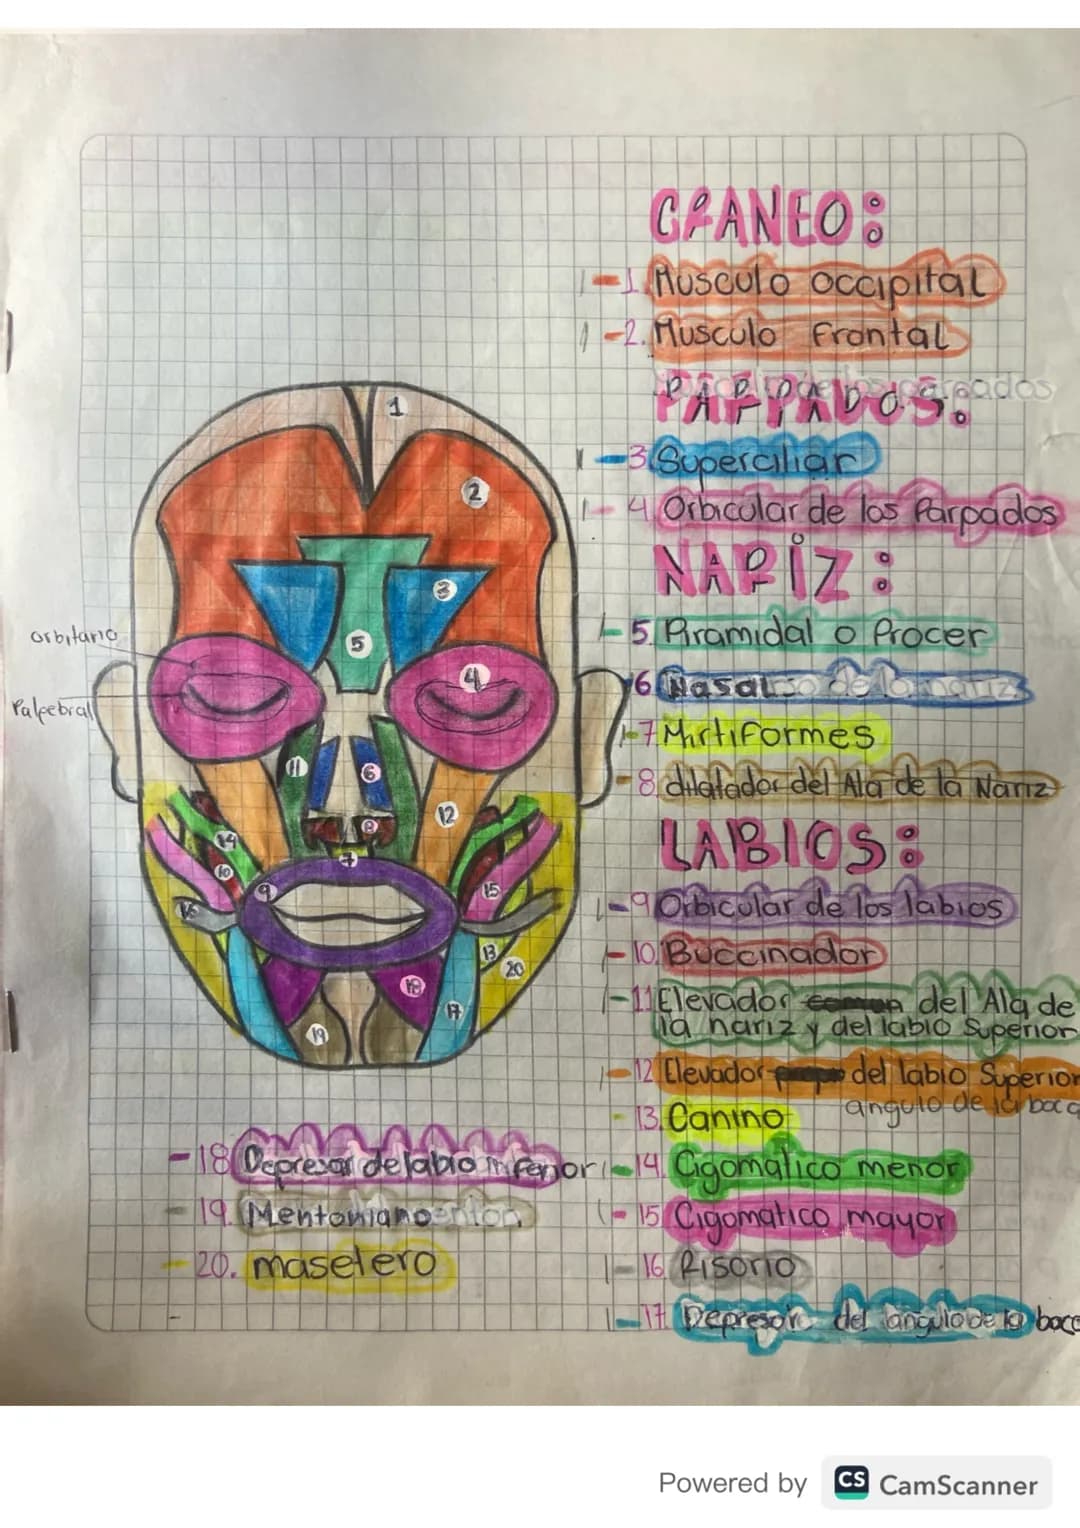 CRANEO:
-1. Musculo occipital
-2. Musculo Frontal
PARPADOS:
parpados
-3 Superciliar
-4. Orbicular de los Parpados
NARIZ:
-5. Piramidal o Procer
6 Nasal de la nariz
-7 Mirtiformes
-8. dilatador del Ala de la Nariz
LABIOS:
-9 Orbicular de los labios
-10. Buccinador
-11. Elevador comun del Ala de
la nariz y del labio Superior
-12 Elevador propio del labio Superior
angulo de la boca
-13. Canino
-14. Cigomatico menor
-15 Cigomatico mayor
-16 Risorio
-17. Depresor del angulo de la boca
-18 Depresor de labio inferior
-19. Mentoniano
-20. masetero
orbitario
Palpebral
1
2
3
5
4
11
6
12
8
7
14
10
9
15
16
13
20
18
17
19
Powered by CS CamScanner